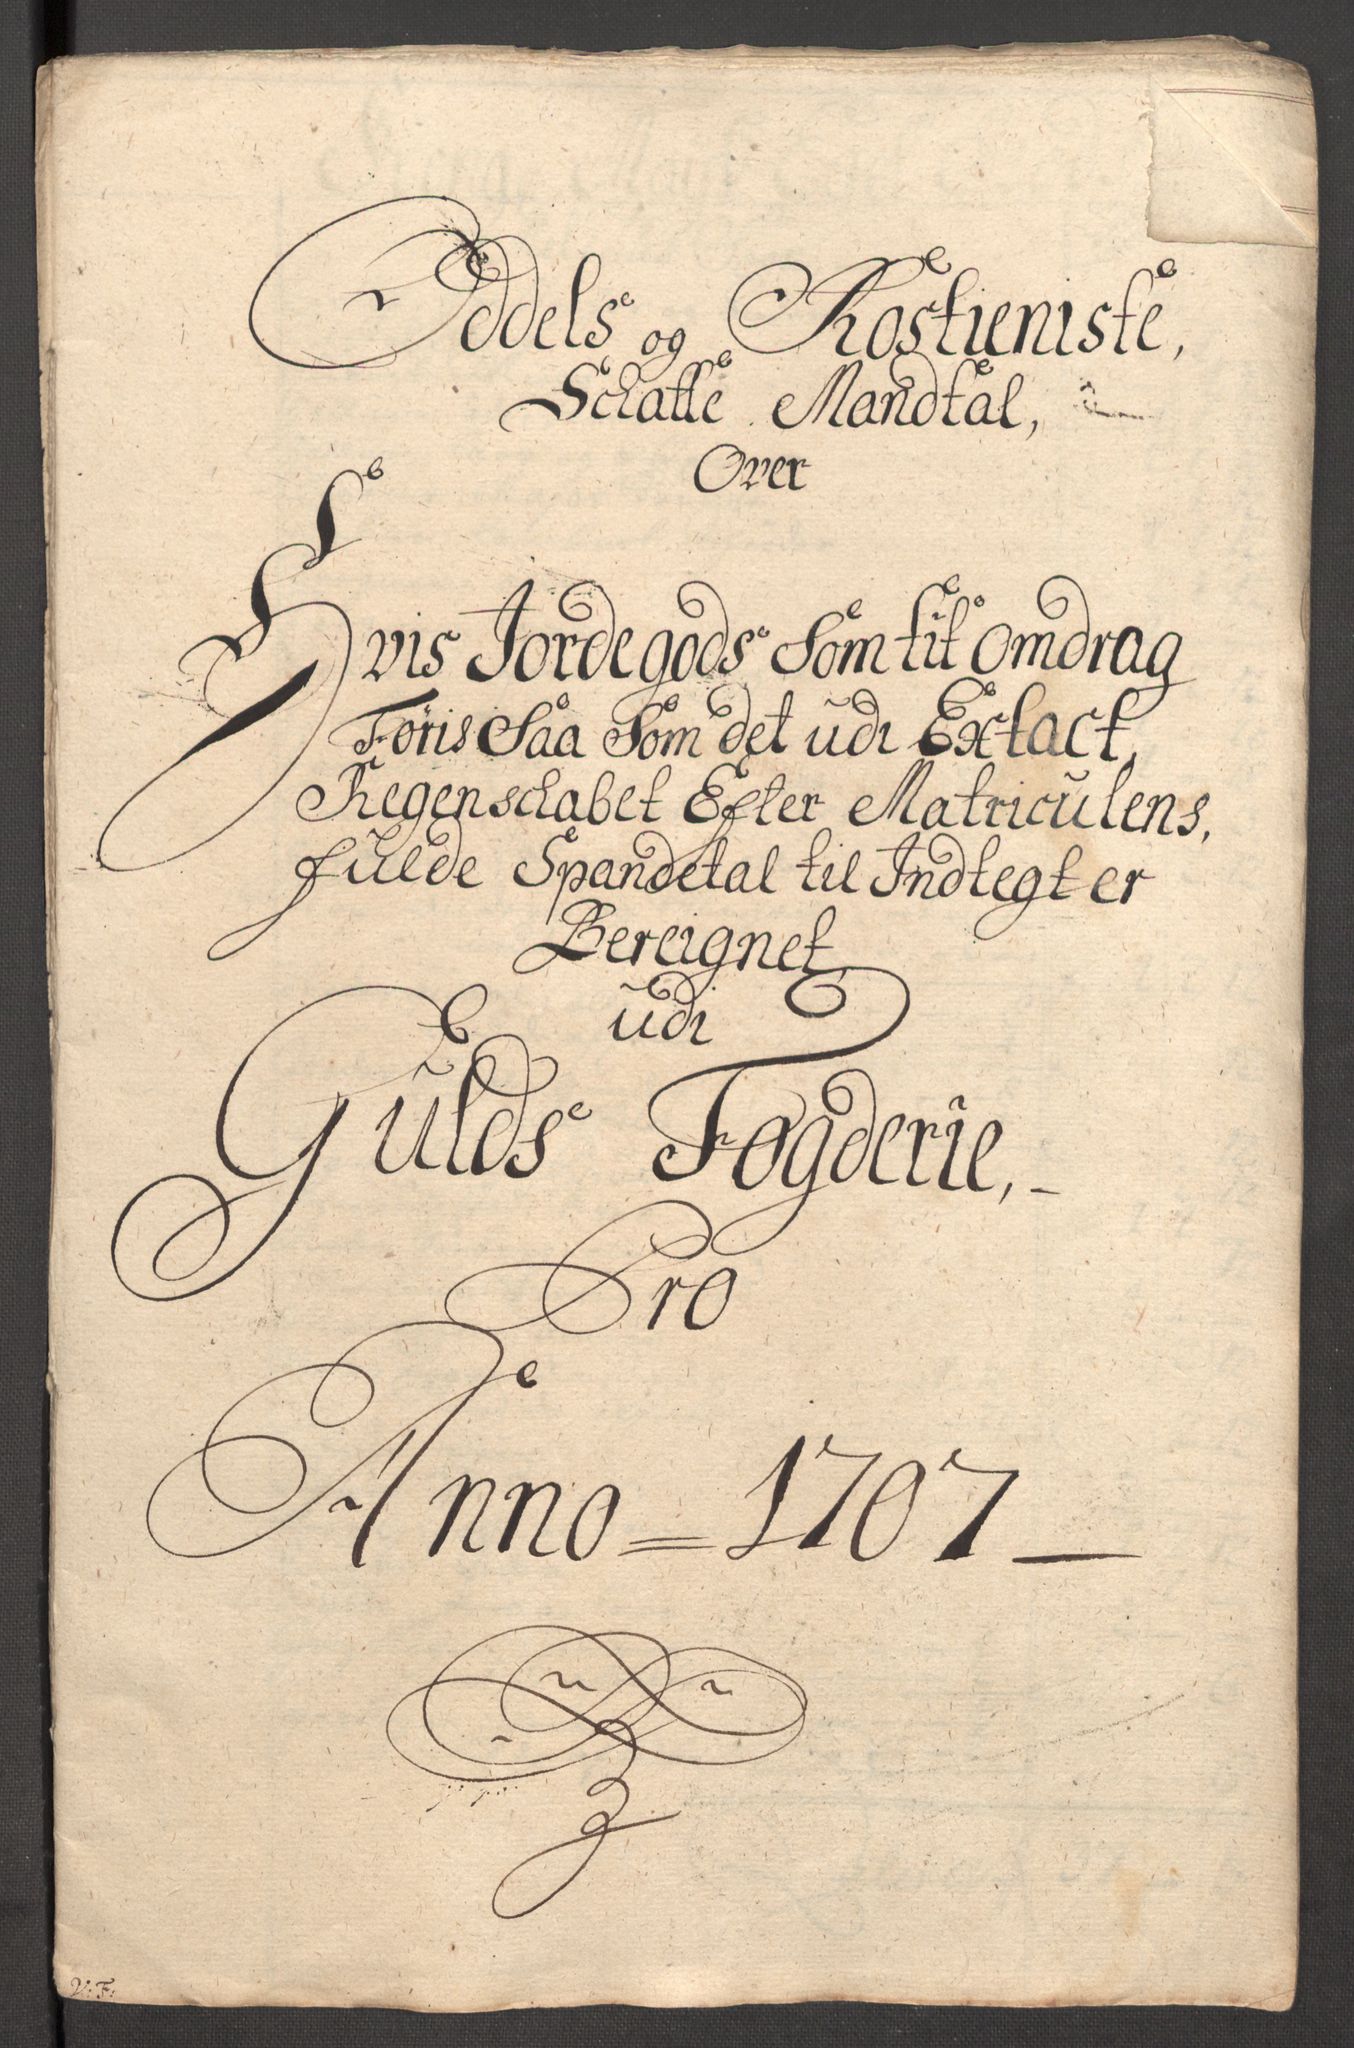 Oddels og Rostieniste,
Schatte Mandtal,
Over
Hvis Jordegods Som til omdrag
Föris Saa Som det udi Extact,
Regenschabet Efter Matriculens,
fulde Spandetal til Indtegt er
Bereignet
udi
Gulds Fogderie,
Pro
Anno = 1707